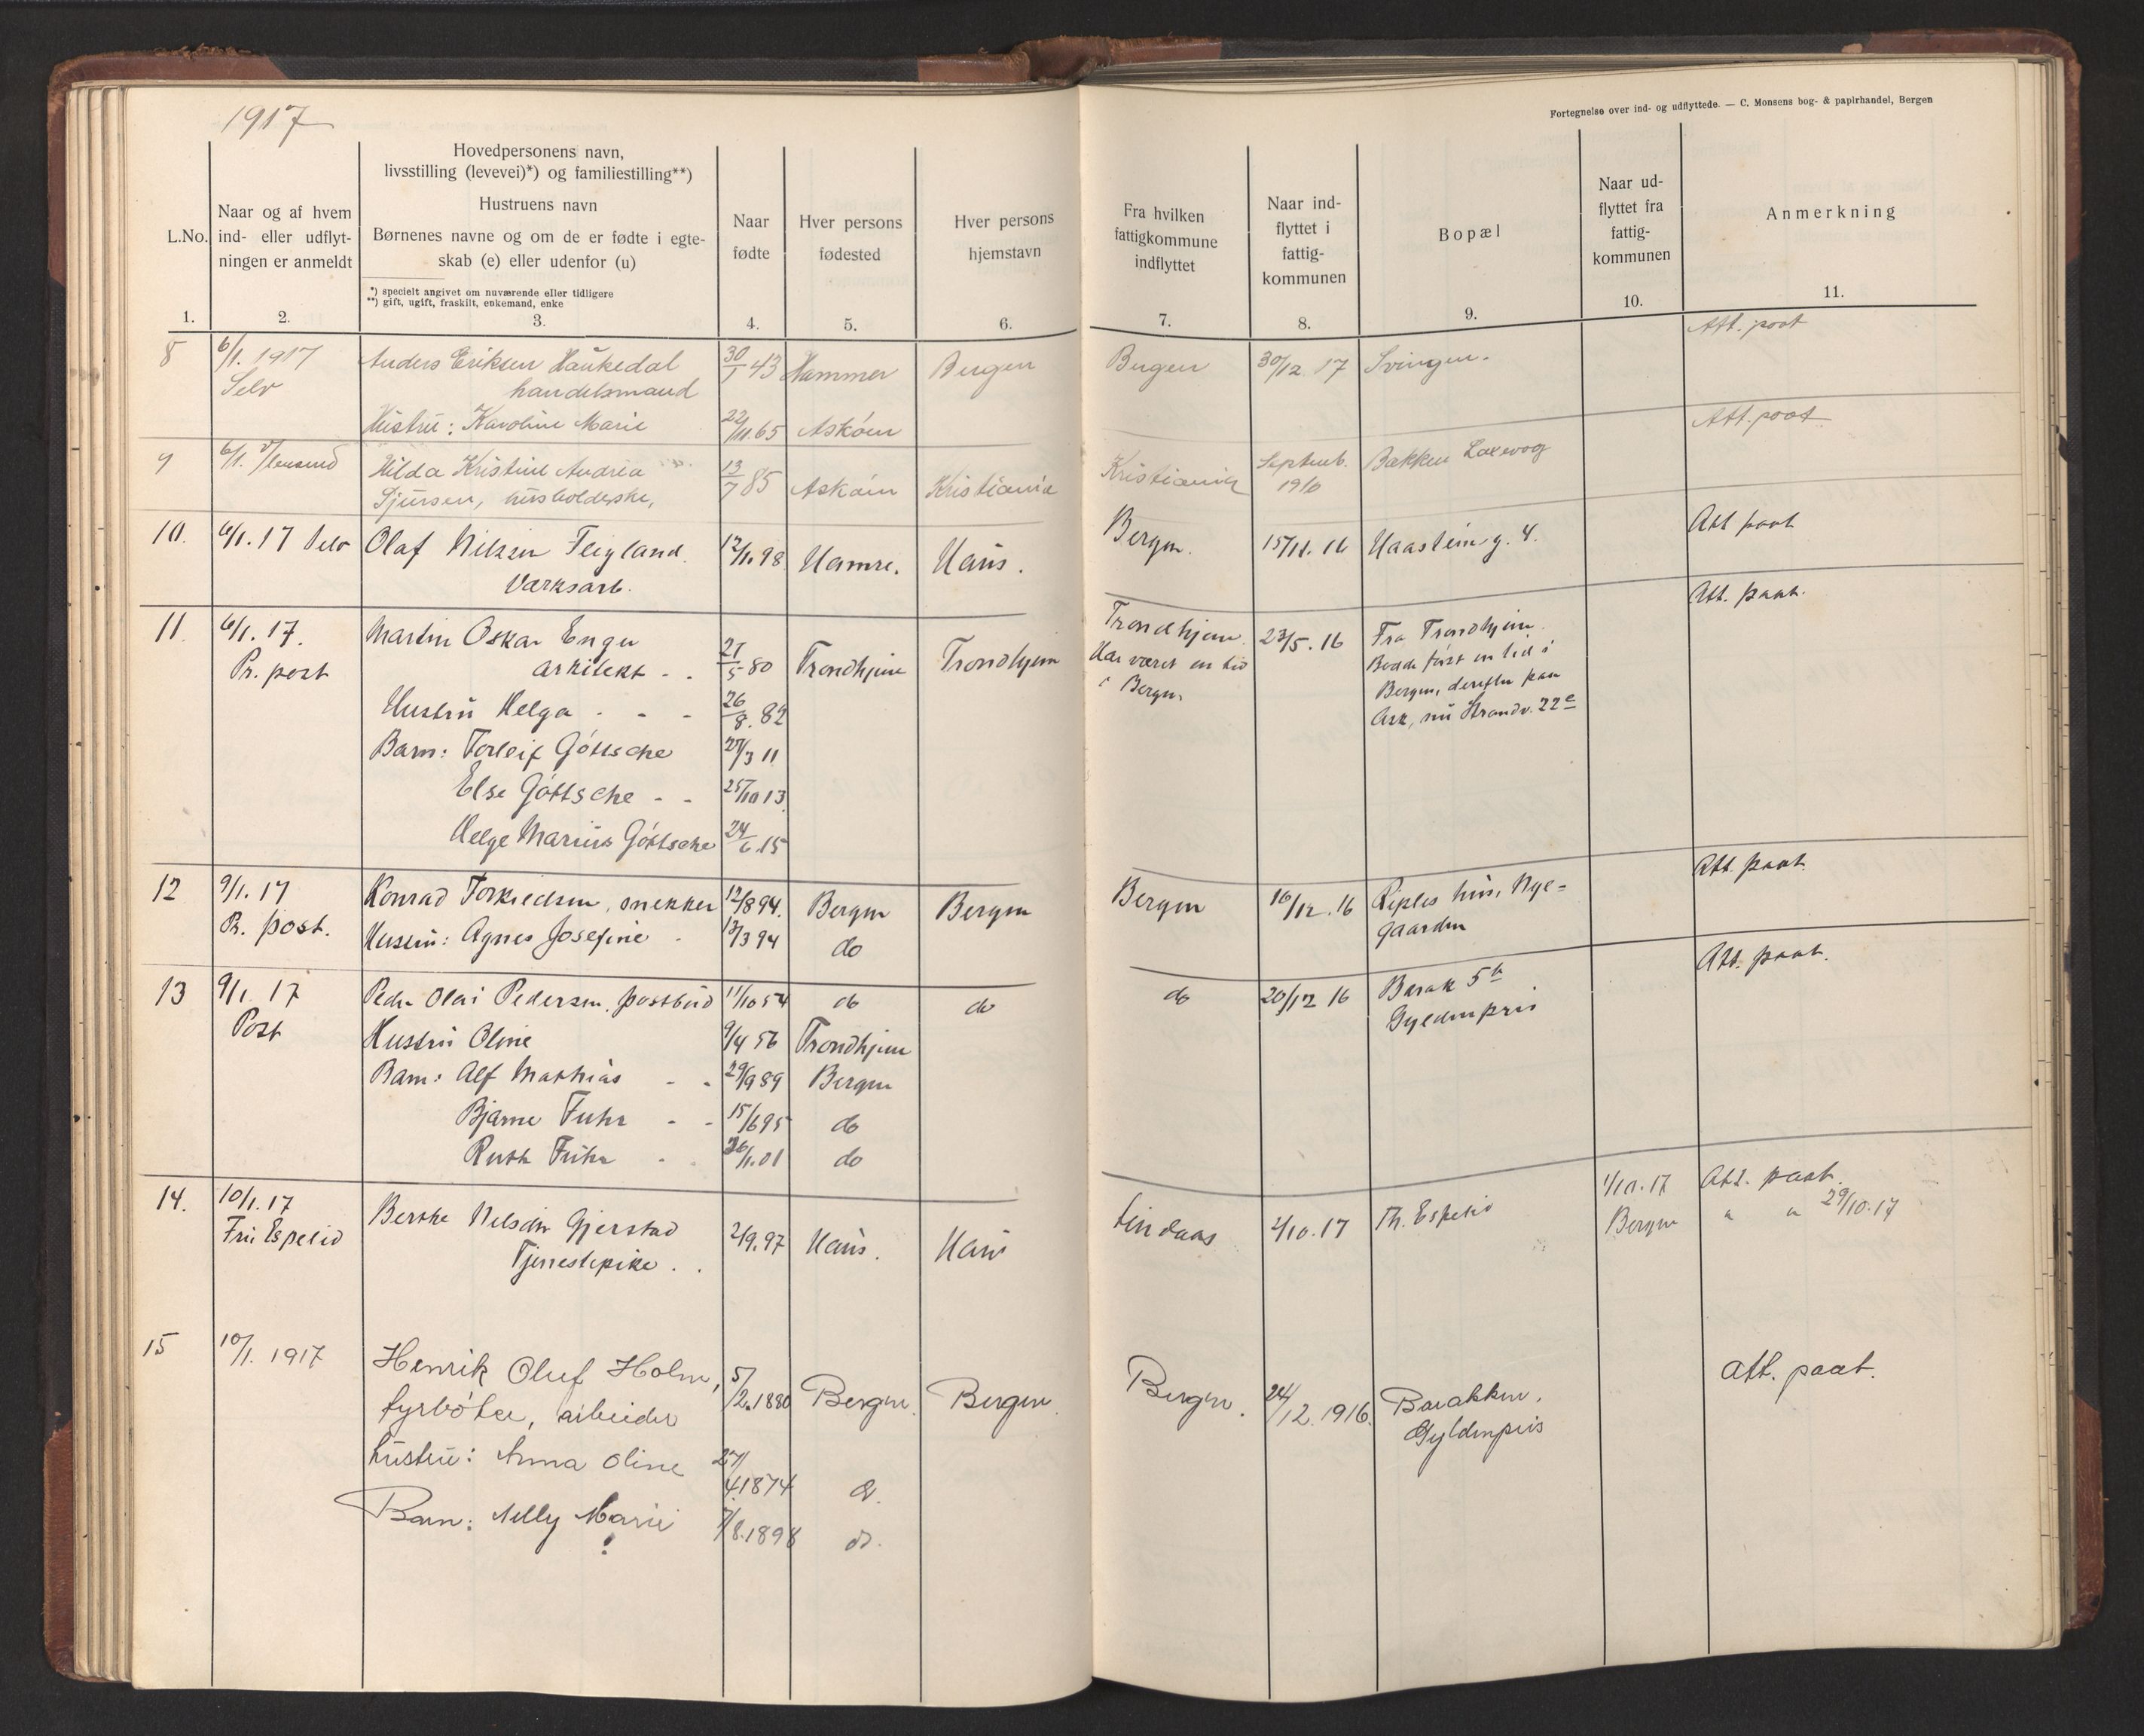 1917
Fortegnelse over ind- og udflyttede. — C. Monsens bog- & papirhandel, Bergen
L.No.
1.
Naar og af hvem
ind- eller udflyt-
ningen er anmeldt
2.
Hovedpersonens navn,
livsstilling (levevei)*) og familiestilling**)
Hustruens navn
Børnenes navne og om de er fødte i egte-
skab (e) eller udenfor (u)
*) specielt angivet om nuværende eller tidligere
**) gift, ugift, fraskilt, enkemand, enke
3.
Naar
fødte
4.
Hver persons
fødested
5.
Hver persons
hjemstavn
6.
Fra hvilken
fattigkommune
indflyttet
7.
Naar ind-
flyttet i
fattig-
kommunen
8.
Bopæl
9.
Naar ud-
flyttet fra
fattig-
kommunen
10.
Anmerkning
11.
8 6/1. 1917 Anders Eriksen Haukedal 30/1 43 Hammer Bergen Bergen 30/12 17 Svingen. Att. paat
Selv handelsmand
Hustru: Karoline Marie 22/11.65 Askøen
9 6/1. Hilda Kristine Andrea 13/7 85 Askøen Kristiania Kristiania Septemb. 1910 Bakken Laxevog Att. paat
husholderske,
10. 6/1.17 Selv Olaf Nilsen Teigland 12/11.98 Hamre. Haus. Bergen. 15/11.16 Haasteins g. 4. Att paat
Værksarb.
11. 6/1.17. Martin Oskar Engen Trondhjem 23/5.16 Fra Trondhjem. Att. paat.
Pr. post arkitekt - . 21/5 80 Trondhjem Trondhjem Har været en tid Bodde først en tid i
i Bergen, Bergen, derefter paa
Hustru Helga - - - 26/8.82 Ask, nu Strandv. 22c
Barn: Torleif Gøttsche 27/3 11
Else Gøttsche - - 25/10 13
Helge Marius Gøttsche 24/6.15
12 9/1.17 Konrad Torkildsen, snekker 12/8 94. Bergen Bergen Bergen 16/12.16 Riples hus, Nye- Att. paat.
Pr. post. Hustru: Agnes Josefine - 13/3 94 do gaarden
13 9/1.17 Peder Olai Pedersen, postbud 11/10 54 do do do 20/12 16 Barak 5b Att. paat.
Post Gyldenpris
Hustru Oline 9/4 56 Trondhjem
Barn: Alf Mathias - - 29/9 89 Bergen
Bjarne Fuhr - - 15/6 95 do
Ruth Fuhr - . 26/1.01 do
14. 10/1.17 Berthe Nelsdtr Gjerstad 2/9.97 Haus. Haus Lindaas 2/10.17 Th. Espelid 1/10.17 Att. paat.
Fru Espelid Tjenestepike . . Bergen " " 29/10.17
15 10/1. 1917 Henrik Oluf Holm, 5/2.1880 Bergen. Bergen. Bergen. 24/12.1916. Barakken, Att. paat.
fyrbøter, arbeider Gyldenpris
hustru: Anna Oline 27/4.1874 do.
Barn: Nelly Marie 7/8.1898 do.